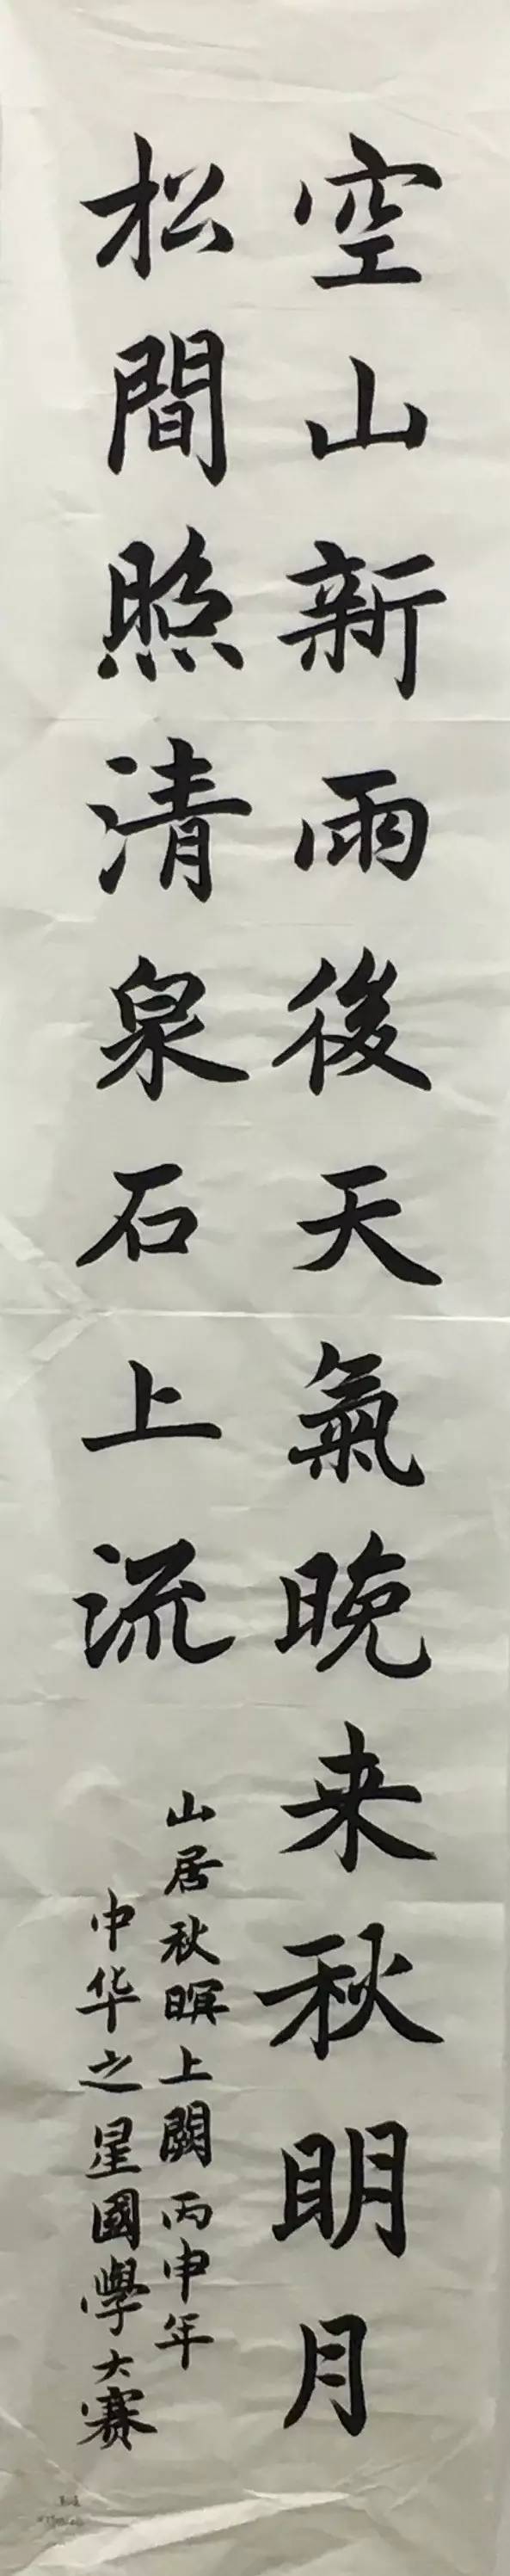 空山新雨後天氣晚来秋明月
松間照清泉石上流
山居秋暝上闋丙申年
中华之星國學大赛